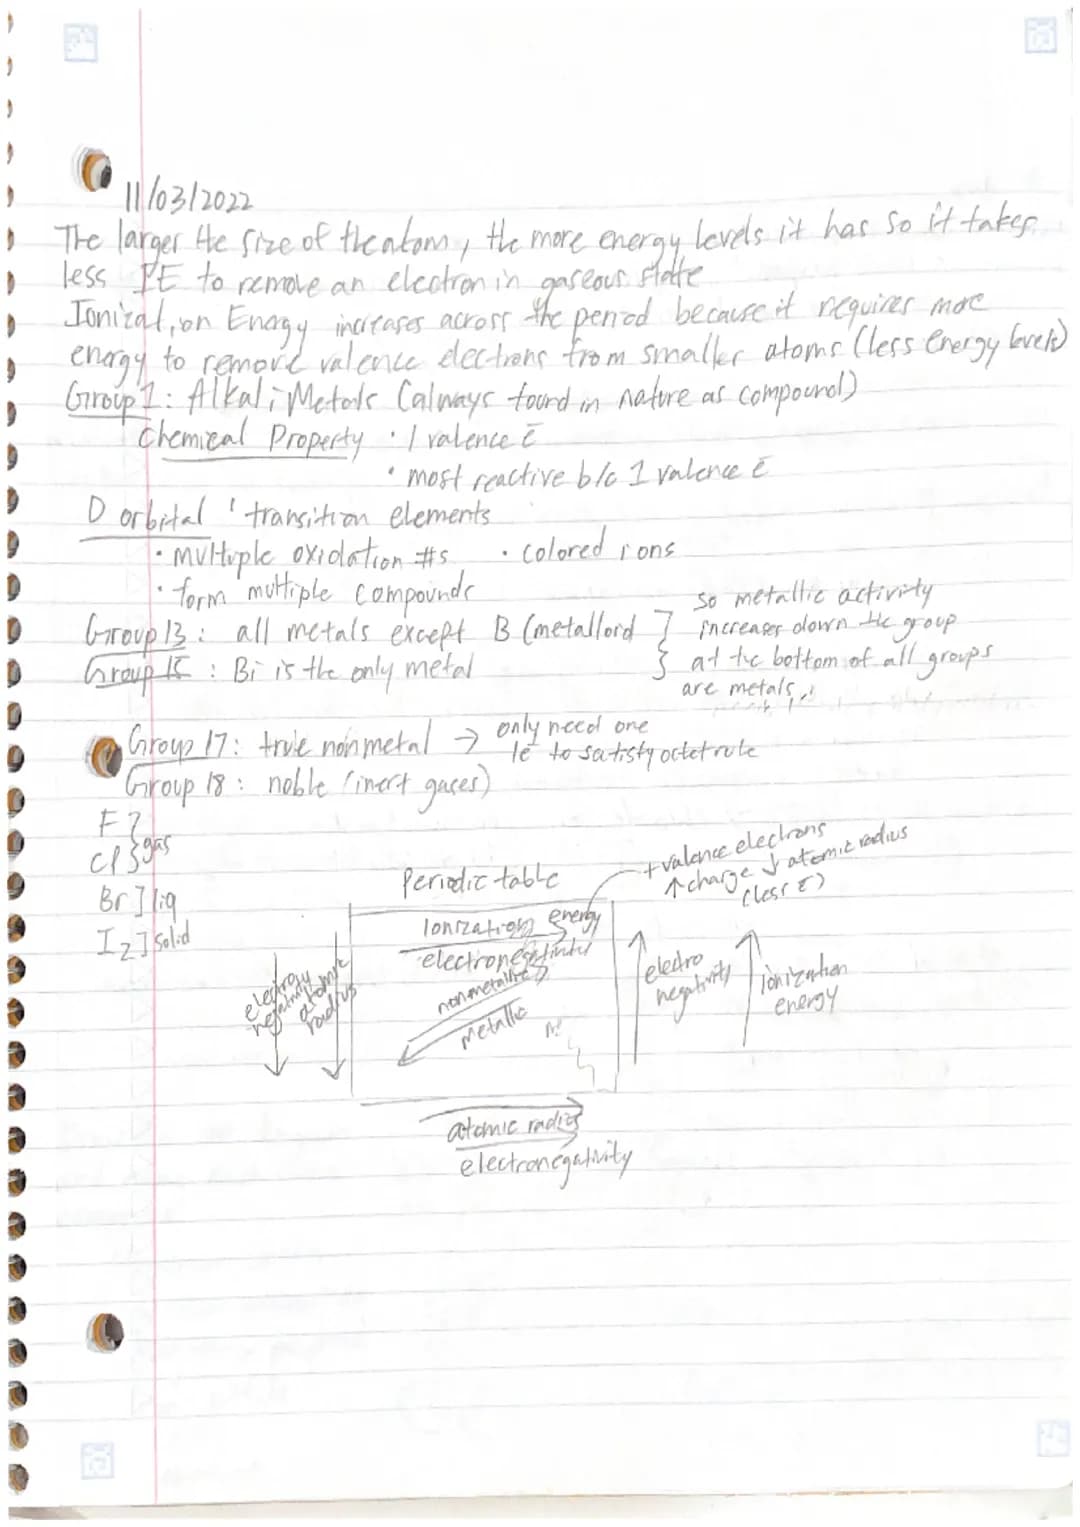 11/03/2022
The larger the size of the atom, the more energy levels it has so it takes
less IE to remove an electron in gaseous state
Ionization Energy increases across the period because it requires more
energy to remove valence electrons from smaller atoms (less energy levels)
Group 1: Alkali Metals (always found in nature as compound)
Chemical Property • 1 valence ē
• most reactive b/c 1 valence ē
D orbital ' transition elements
• multiple oxidation #s • colored ions
• form multiple compounds
Group 13: all metals except B (metalloid
Group 15: Bi is the only metal
so metallic activity
increases down the group
at the bottom of all groups
are metals
Group 17: true nonmetal → only need one
1e to satisfy octet rule
Group 18: noble (inert gases)
F
Cl } gas
Br ] liq
I2 ] solid
Periodic table
+ valence electrons
↑ charge ↓ atomic radius
(less E)
Ionization energy
electronegativity
nonmetallic
metallic
electro
negativity
atomic
radius
electro
negativity
ionization
energy
atomic radius
electronegativity